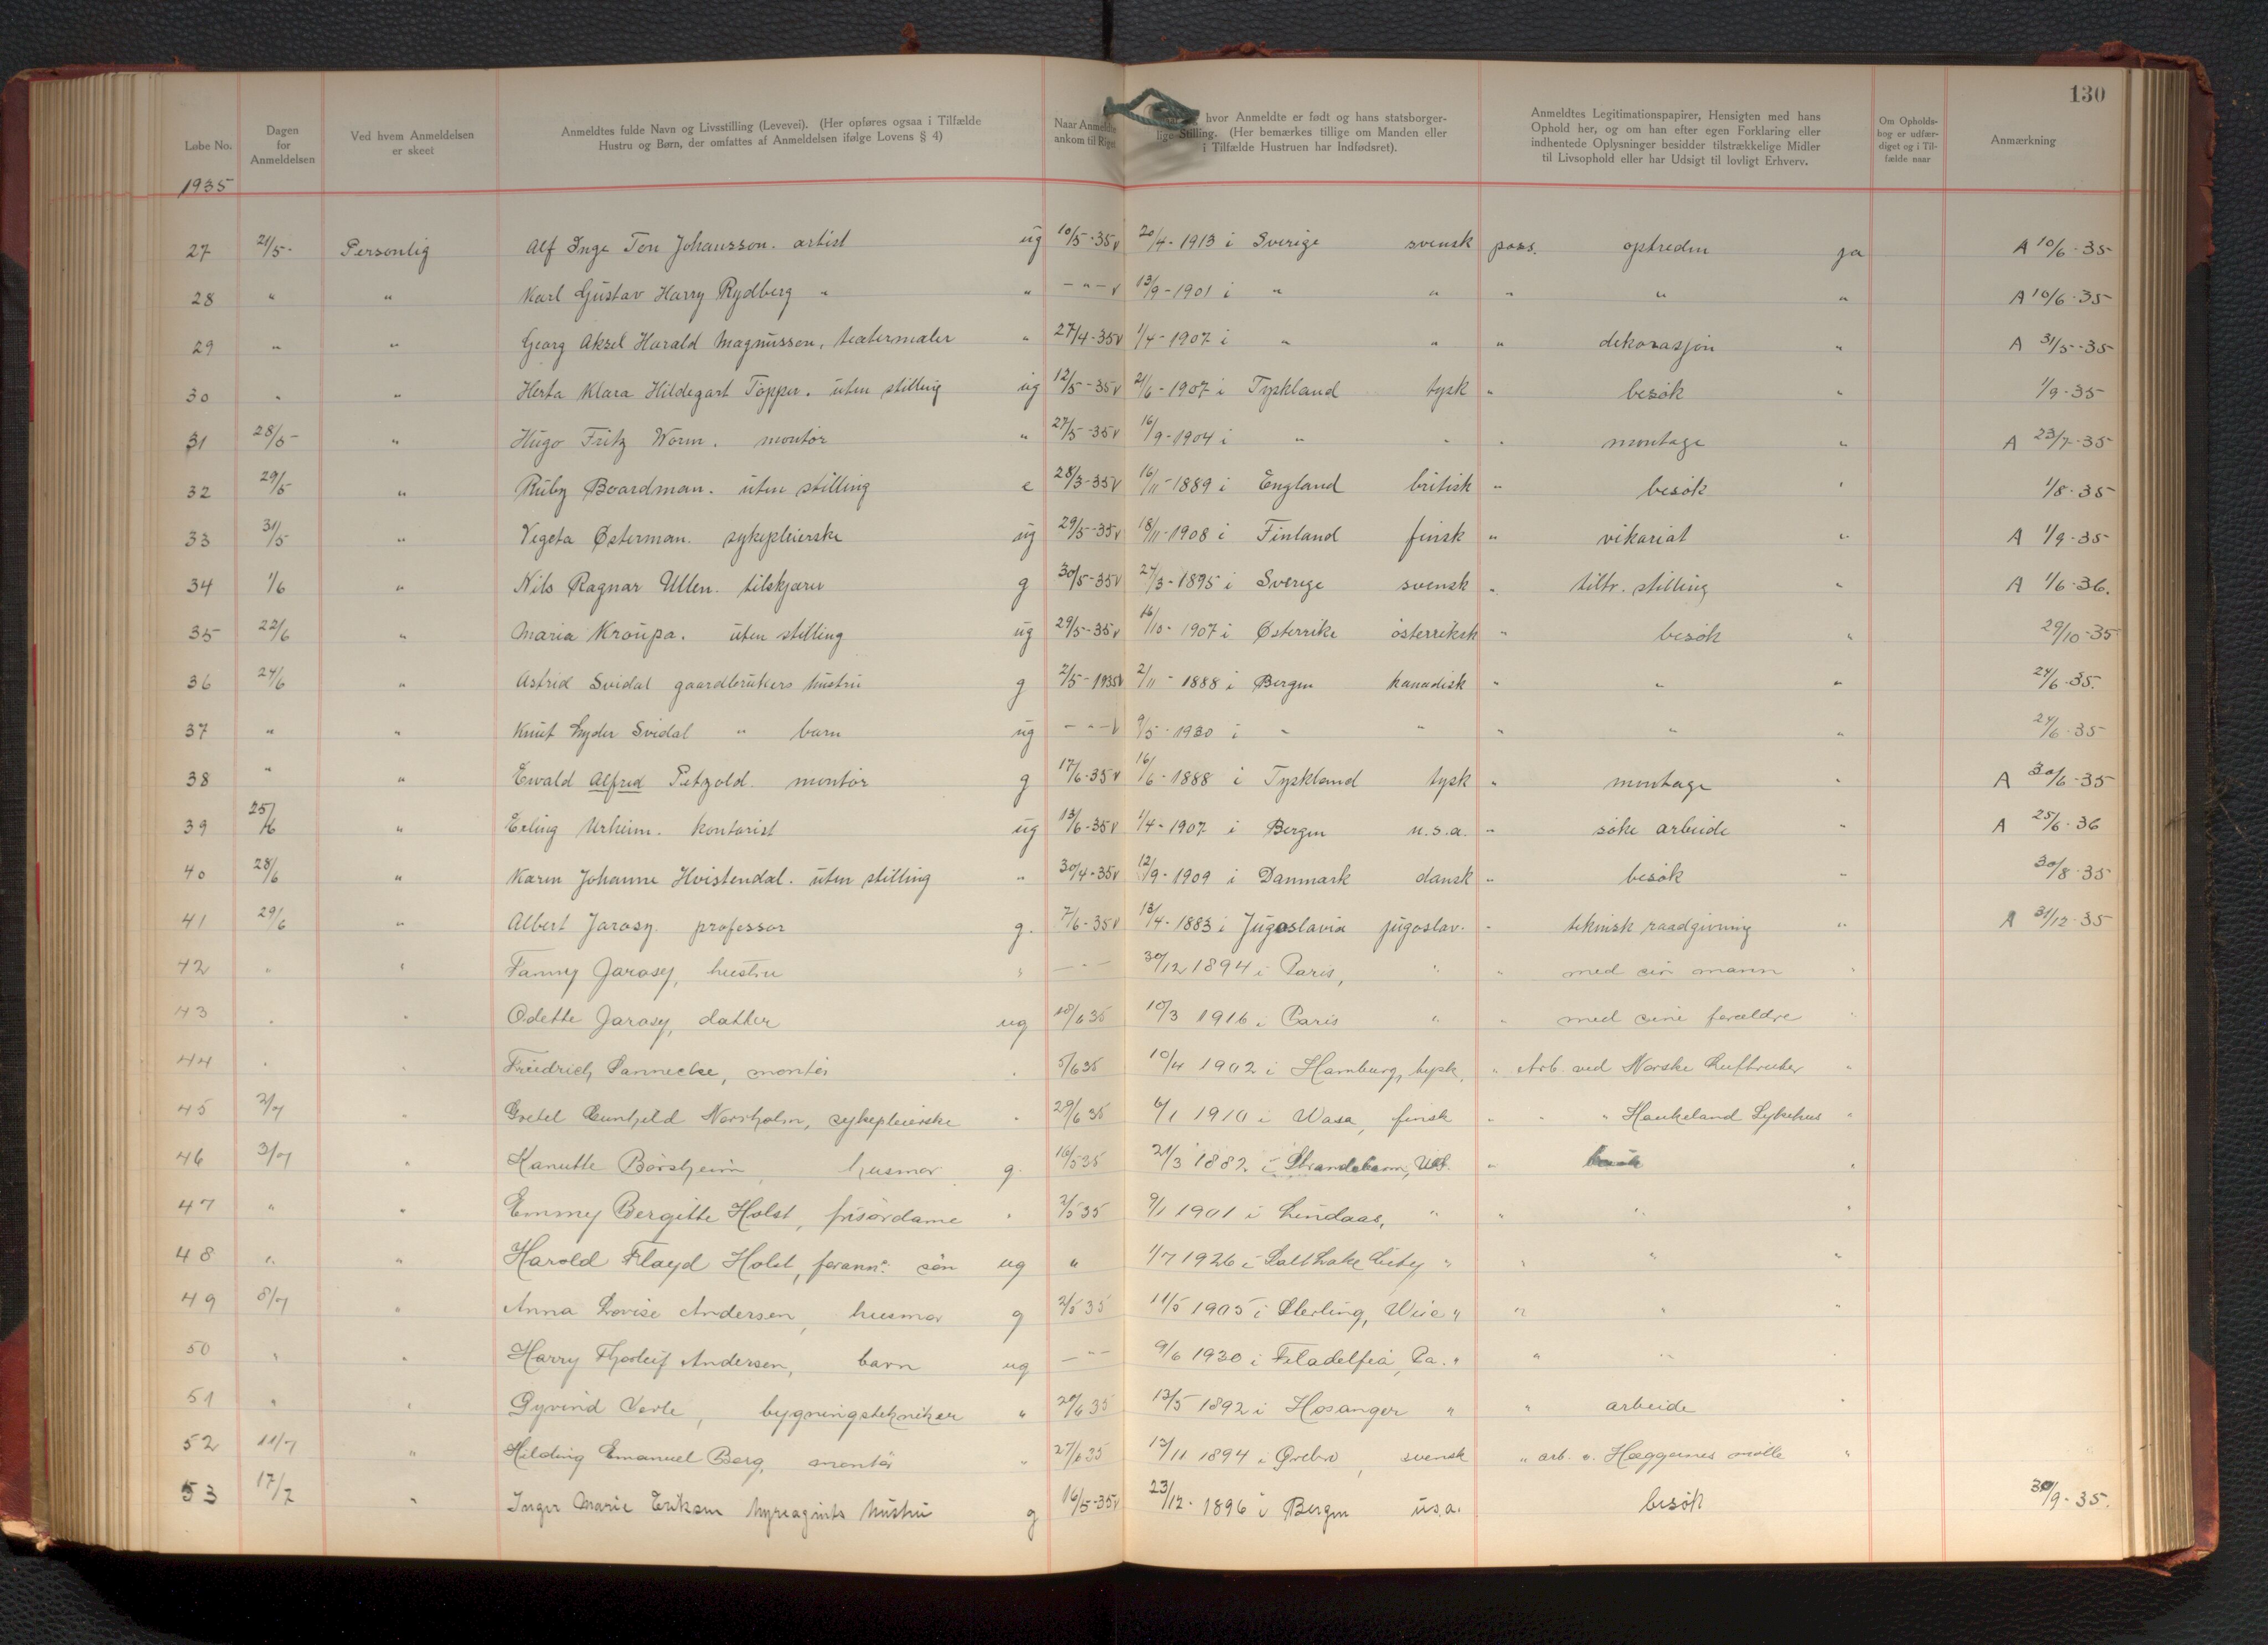 130
Løbe No.
Dagen for Anmeldelsen
Ved hvem Anmeldelsen er skeet
Anmeldtes fulde Navn og Livsstilling (Levevei). (Her opføres ogsaa i Tilfælde Hustru og Børn, der omfattes af Anmeldelsen ifølge Lovens § 4)
Naar Anmeldte ankom til Riget
hvor Anmeldte er født og hans statsborgerlige Stilling. (Her bemærkes tillige om Manden eller i Tilfælde Hustruen har Indfødsret).
Anmeldtes Legitimationspapirer, Hensigten med hans Ophold her, og om han efter egen Forklaring eller indhentede Oplysninger besidder tilstrækkelige Midler til Livsophold eller har Udsigt til lovligt Erhverv.
Om Opholdsbog er udfærdiget og i Tilfælde naar
Anmærkning
1935
27 21/5- Personlig Alf Inge Ton Johansson. artist ug 10/5-35 v 20/4-1913 i Sverige svensk pass. optreden ja A 10/6-35
28 " " Karl Gustav Harry Rydberg " " - " - v 13/9-1901 i " " " " " A 10/6-35
29 " " Georg Aksel Harald Magnusson, teatermaler " 27/4-35 v 1/4-1907 i " " " dekorasjon " A 31/5-35
30 " " Herta Klara Hildegart Töpper. uten stilling ug 12/5-35 v 21/6-1907 i Tyskland tysk " besøk " 1/9-35
31 28/5- " Hugo Fritz Worm. montør " 27/5-35 v 16/9-1904 i " " " montage " A 23/7-35
32 29/5 " Ruby Boardman. uten stilling e 28/3-35 v 16/11-1889 i England britisk " besøk " 1/8-35
33 31/5 " Vegeta Østerman. sykepleierske ug 29/5-35 v 18/11-1908 i Finland finsk " vikariat " A 1/9-35
34 1/6 " Nils Ragnar Ullen. tilskjærer g 30/5-35 v 27/3-1895 i Sverige svensk " tiltr. stilling " A 1/6-36.
35 22/6 " Maria Kroupa. uten stilling ug 29/5-35 v 16/10-1907 i Østerrike østerriksk " besøk " 29/10-35
36 24/6 " Astrid Svidal gaardbrukers hustru g 2/5-1935 v 2/11-1888 i Bergen kanadisk " " " 24/6-35.
37 " " Knut Lyder Svidal " barn ug - " - v 9/5-1930 i " " " " " 24/6-35
38 " " Ewald Alfred Petzold. montør g 17/6-35 v 16/6-1888 i Tyskland tysk " montage " A 30/6-35
39 25/6 " Erling Urheim. kontorist ug 13/6-35 v 1/4-1907 i Bergen u.s.a. " søke arbeide " A 25/6-36
40 28/6 " Karen Johanne Hvistendal. uten stilling " 30/4-35 v 12/9-1909 i Danmark dansk " besøk " 30/8-35
41 29/6 " Albert Jarosy. professor g. 7/6-35 v 13/4-1883 i Jugoslavia jugoslav. " teknisk raadgivning " A 31/12-35
42 " " Fanny Jarosy, hustru " - " - 30/12 1894 i Paris, " " med sin mann "
43 " " Odette Jarosy, datter ug 18/6 35 10/3 1916 i Paris " " med sine forældre "
44 " " Friedrich Pannecke, montør " 5/6 35 10/4 1902 i Hamburg, tysk, " Arb. ved Norske Luftruter "
45 2/7 " Gretel Gunhjeld Norrholm, sykepleierske " 29/6 35 6/1 1910 i Wasa, finsk " " " Haukeland Sykehus "
46 3/7 " Kanutte Børsheim, husmor g. 16/5 35 21/3 1882 i Strandebarm, US. " besøk "
47 " " Emmy Bergitte Holst, frisørdame " 2/5 35 9/1 1901 i Lindaas, " " " "
48 " " Harold Floyd Holst, forann: søn ug " 1/7 1926 i Salt Lake City " " " "
49 8/7 " Anna Lovise Andersen, husmor g 2/5 35 11/5 1905 i Sterling, " " " "
50 " " Harry Thorleif Andersen, barn ug - " - 9/6 1930 i Filadelfia, Pa. " " " "
51 " " Øyvind , bygningstekniker " 29/6 35 13/5 1892 i Hosanger " " arbeide "
52 11/7 " Hilding Emanuel Berg, montør " 27/6 35 13/11 1894 i Ørebro, svensk " arb. v. Hæggernes mølle "
53 17/7 " Inger Marie Eriksen hyreagents hustru g 16/5-35 v 23/12-1896 i Bergen usa. besøk 30/9-35.